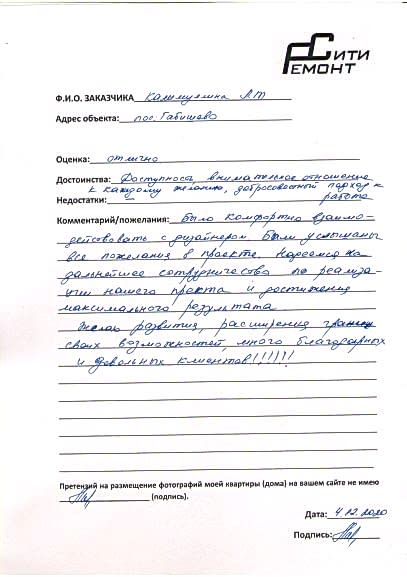 СИТИ
РЕМОНТ
Ф.И.О. ЗАКАЗЧИКА Калимуллина Л.Т
Адрес объекта: пос. Габишево
Оценка: отлично
Достоинства: Доступность, внимательное отношение
к каждому желанию, добросовестный подход к
Недостатки: работе
Комментарий/пожелания: Было комфортно взаимо-
действовать с дизайнером. Были услышаны
все пожелания в проекте. Надеемся на
дальнейшее сотрудничество по реализа-
ции нашего проекта и достижения
максимального результата
Желаю развития, расширения границ
своих возможностей, много благодарных
и довольных клиентов!!!!!!!
Претензий на размещение фотографий моей квартиры (дома) на вашем сайте не имею
(подпись).
Дата: 4.12.2020
Подпись: